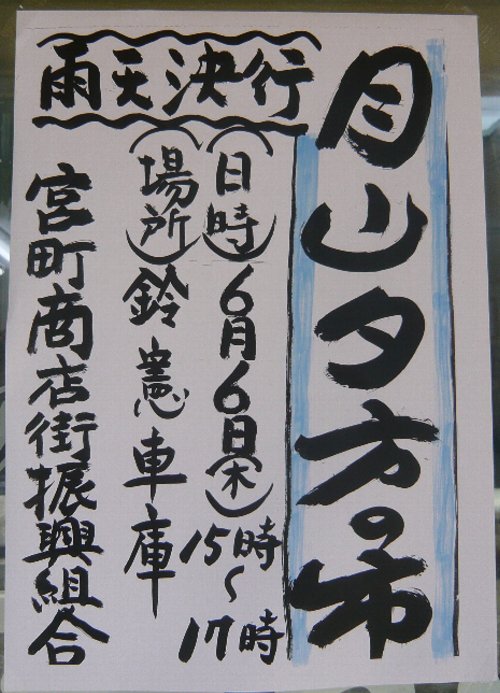 月山夕方の市
雨天決行
(日時)6月6日(木)15時〜17時
(場所)鈴憲車庫
宮町商店街振興組合